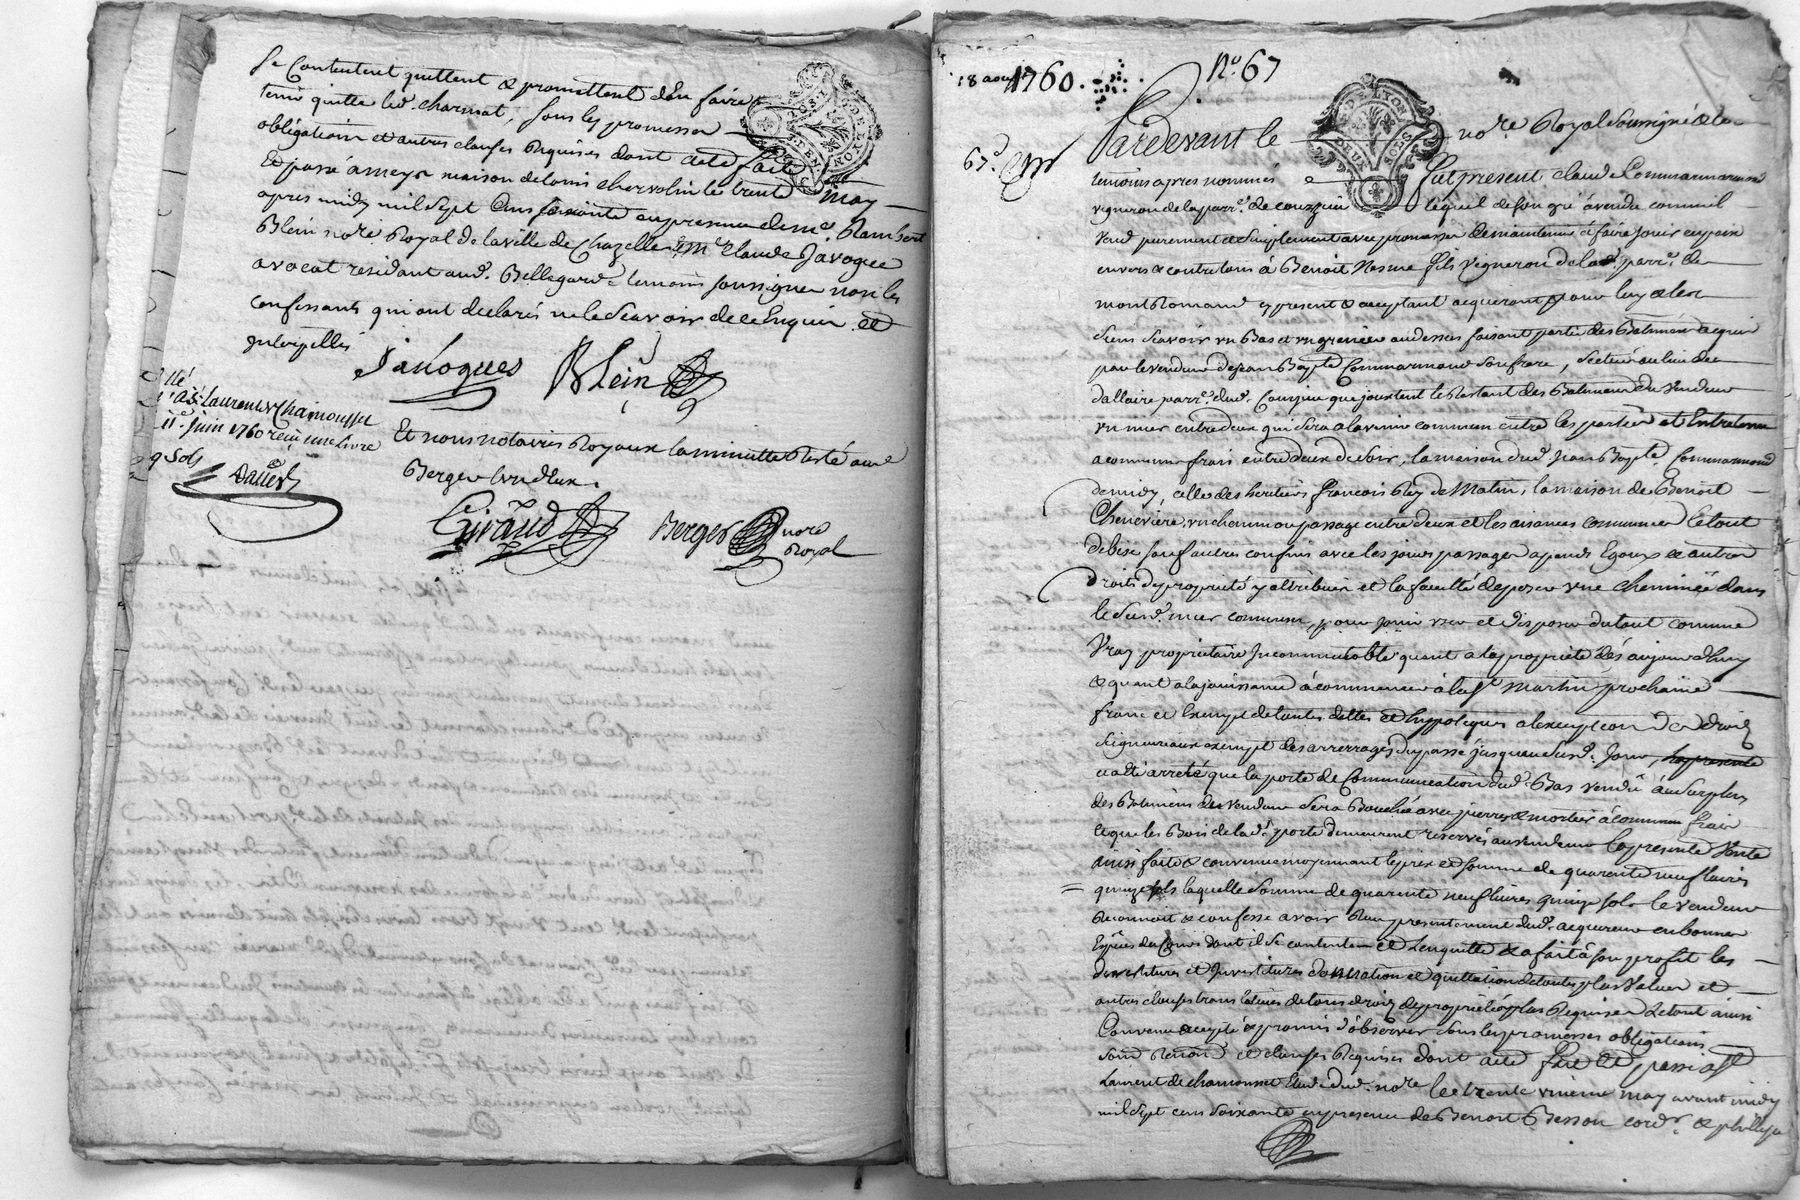 Se Contentent quittent & promettent d'En faire
tenir quitte led. charmat, sous les promesses
obligations et autres clauses Requises dont acte fait
Et passé a meys maison de louis chervolin le trente may
apres midy mil sept Cens soixante en presence de me. Rambert
Blein nore. Royal de la ville de Chazelle & Mr. claude Javogue
avocat residant aud. Bellegarde temoins soussignes non les
confessants qui ont declarés ne le Scavoir de ce Enquis et
interpellés
Javogues Blein
lé
a St. Laurent de Chamousset
11e. Juin 1760 reçu une Livre
9 Sols
Et nous notaires Royaux la minutte Resté aud.
Berger l'un d'Eux.
Giraud Berger nore
Royal
DE LYON
DEUX SOLS
18 aout 1760. No. 67
67e.
DE LYON
DEUX SOLS
Pardevant le nore Royal soussigné & les
temoins apres nommés fut present claude Commarmond
vigneron de la parre. de couzieu lequel de son gré a vendu comme il
vend purement et simplement avec promesse de maintenir et faire jouir en paix
envers & contre tous à Benoit Nesme fils vigneron de la parre. de
montRomand cy present & acceptant acquerant pour luy & les
siens Scavoir un Bas et un grenier au dessus faisant partie des Batiments acquis
par le vendeur de jean Bapte. Commarmond son frere, scitué au lieu de
dallaire parre. dud. Couzieu que joustent le Restant des Batiments du vendeur
un mur entredeux qui sera a l'avenir commun entre les parties et Entretenu
a communs frais entre deux de soir, la maison dud. jean Bapte. Commarmond
de midy, celle des heritiers françois Rey de Matin, la maison de Benoit
Cheneviere un chemin ou passage entre deux et les aisances communes le tout
de bise sauf autres confins avec les jours passages apends Egoux & autres
droits de proprieté y attribués et la faculté de poser une cheminée dans
le susd. mur commun, pour jouir user et disposer du tout comme
Vray proprietaire Incommutable quant a la proprieté dés aujourd'huy
& quant a la jouissance à commencer à la St. martin prochaine
franc et Exempt de toutes dettes et hyppoteques a l'exception des droits
seigneuriaux exempt des arrerrages du passé jusques au susd. jour, la presente
a eté arreté que la porte de Communication dud. Bas vendu au surplus
des Batiments du vendeur sera Bouchée avec pierres & mortier à communs frais
et que les Bois de lad. porte demeurent reservés au vendeur la presente Vente
ainsi faite & convenue moyennant le prix et somme de quarente neuf livres
quinze sols laquelle somme de quarente neuf livres quinze sols le vendeur
Reconnoit & confesse avoir Reçu presentement dud. acquereur en bonnes
Espèces de cours dont il se contente et l'en quitte & a fait à son profit les
devestitures et Investitures donnation et quittation de toutes plus valeur et
autres clauses translatives de tous droits de proprieté plus Requises le tout ainsi
Convenu accepté & promis d'observer sous les promesses obligations
soumissions Renonc. et clauses Requises dont acte fait et passé a St
Laurent de chamousset Etude dud. nore le trente unieme may avant midy
mil sept cens soixante en presence de Benoit Besson cordr. & philippe